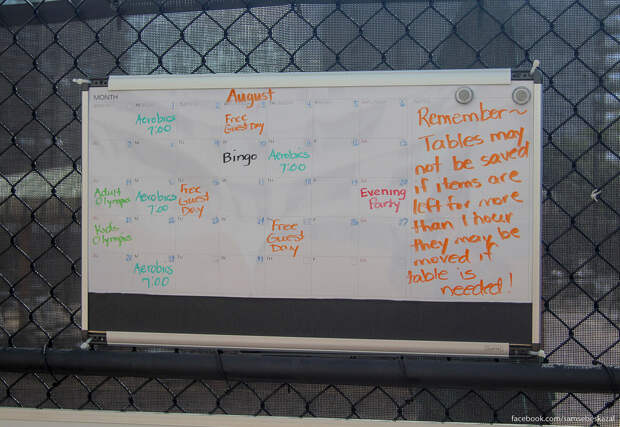 MONTH
August
1 2 3 4 5 6
Aerobics
7:00
Free
Guest Day
Bingo
Aerobics
7:00
20
Adult
Olympics
Aerobics
7:00
Free
Guest
Day
Evening
Party
24
27
Kids
Olympics
Free
Guest
Day
Aerobics
7:00
Remember~
Tables may
not be saved
if items are
left for more
than 1 hour
they may be
moved if
table is
needed!
facebook.com/samsebeskazal